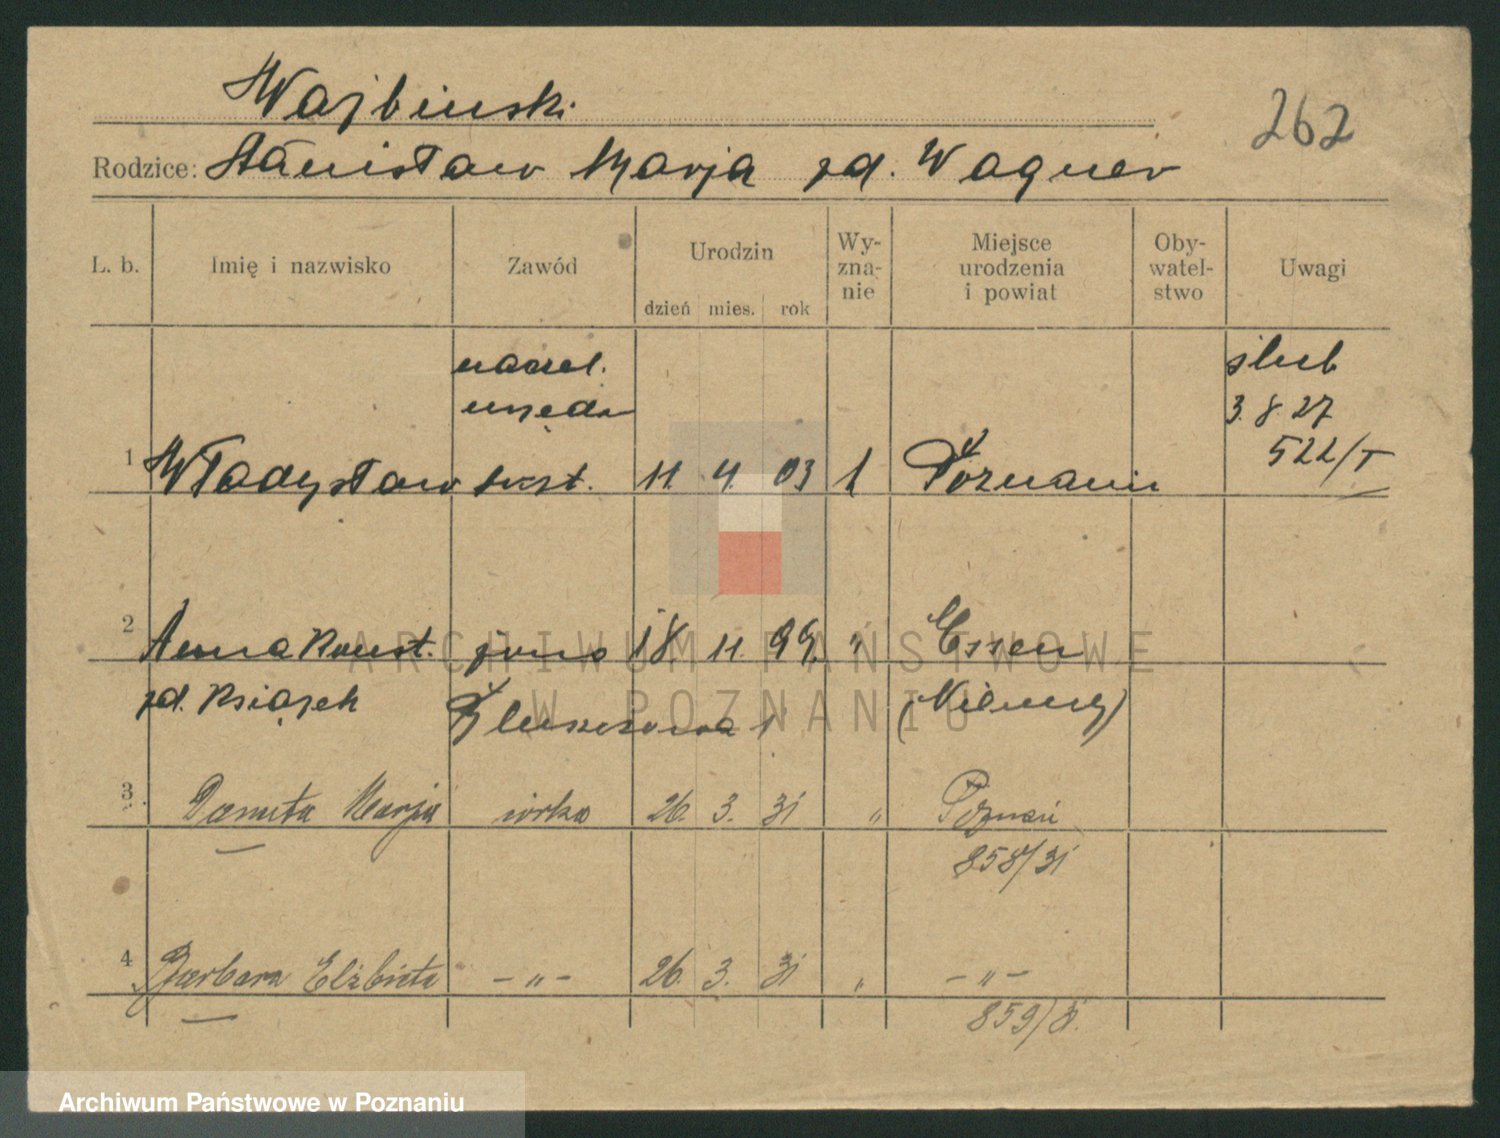 Wajbinski
262
Rodzice: Stanisław Marja zd. Wagner
L. b. Imię i nazwisko Zawód Urodzin Wy-zna-nie Miejsce urodzenia i powiat Oby-watel-stwo Uwagi
dzień mies. rok
naczel. ślub
urzędu 3. 8. 27
522/T
1 Władysław 11. 4. 03 1 Poznaniu
2 Anna Konst. żona 18. 11. 99. " Essen
zd. Książek (Niemcy)
3 Danuta Marja córka 26. 3. 31 " Poznań
858/31
4 Barbara Elżbieta – " – 26. 3. 31 " – " –
859/31.
ARCHIWUM PAŃSTWOWE
W POZNANIU
Archiwum Państwowe w Poznaniu